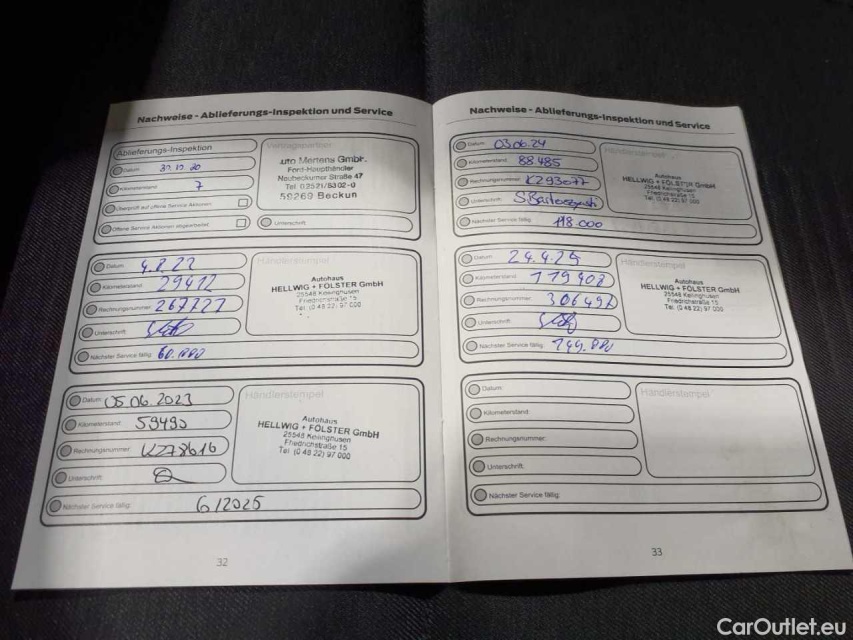 Nachweise - Ablieferungs-Inspektion und Service
Ablieferungs-Inspektion
Datum:
Kilometerstand: 7
Überprüft auf offene Service Aktionen:
Offene Service Aktionen abgearbeitet:
Vertragspartner
Auto Mertens GmbH.
Ford-Haupthändler
Neubeckumer Straße 47
Tel. 02521/8302-0
59269 Beckum
Unterschrift:
Datum:
Kilometerstand: 29412
Rechnungsnummer:
Unterschrift:
Nächster Service fällig: 60.000
Händlerstempel
Autohaus
HELLWIG + FÖLSTER GmbH
25548 Kellinghusen
Friedrichstraße 15
Tel. (0 48 22) 97 000
Datum: 05.06.2023
Kilometerstand: 59490
Rechnungsnummer: KZ78616
Unterschrift:
Nächster Service fällig: 6/2025
Händlerstempel
Autohaus
HELLWIG + FÖLSTER GmbH
25548 Kellinghusen
Friedrichstraße 15
Tel. (0 48 22) 97 000
32
Nachweise - Ablieferungs-Inspektion und Service
Datum: 03.06.24
Kilometerstand: 88485
Rechnungsnummer: KZ93077
Unterschrift:
Nächster Service fällig: 118.000
Händlerstempel
Autohaus
HELLWIG + FÖLSTER GmbH
25548 Kellinghusen
Friedrichstraße 15
Tel. (0 48 22) 97 000
Datum:
Kilometerstand: 119402
Rechnungsnummer:
Unterschrift:
Nächster Service fällig: 149.000
Händlerstempel
Autohaus
HELLWIG + FÖLSTER GmbH
25548 Kellinghusen
Friedrichstraße 15
Tel. (0 48 22) 97 000
Datum:
Kilometerstand:
Rechnungsnummer:
Unterschrift:
Nächster Service fällig:
Händlerstempel
33
CarOutlet.eu